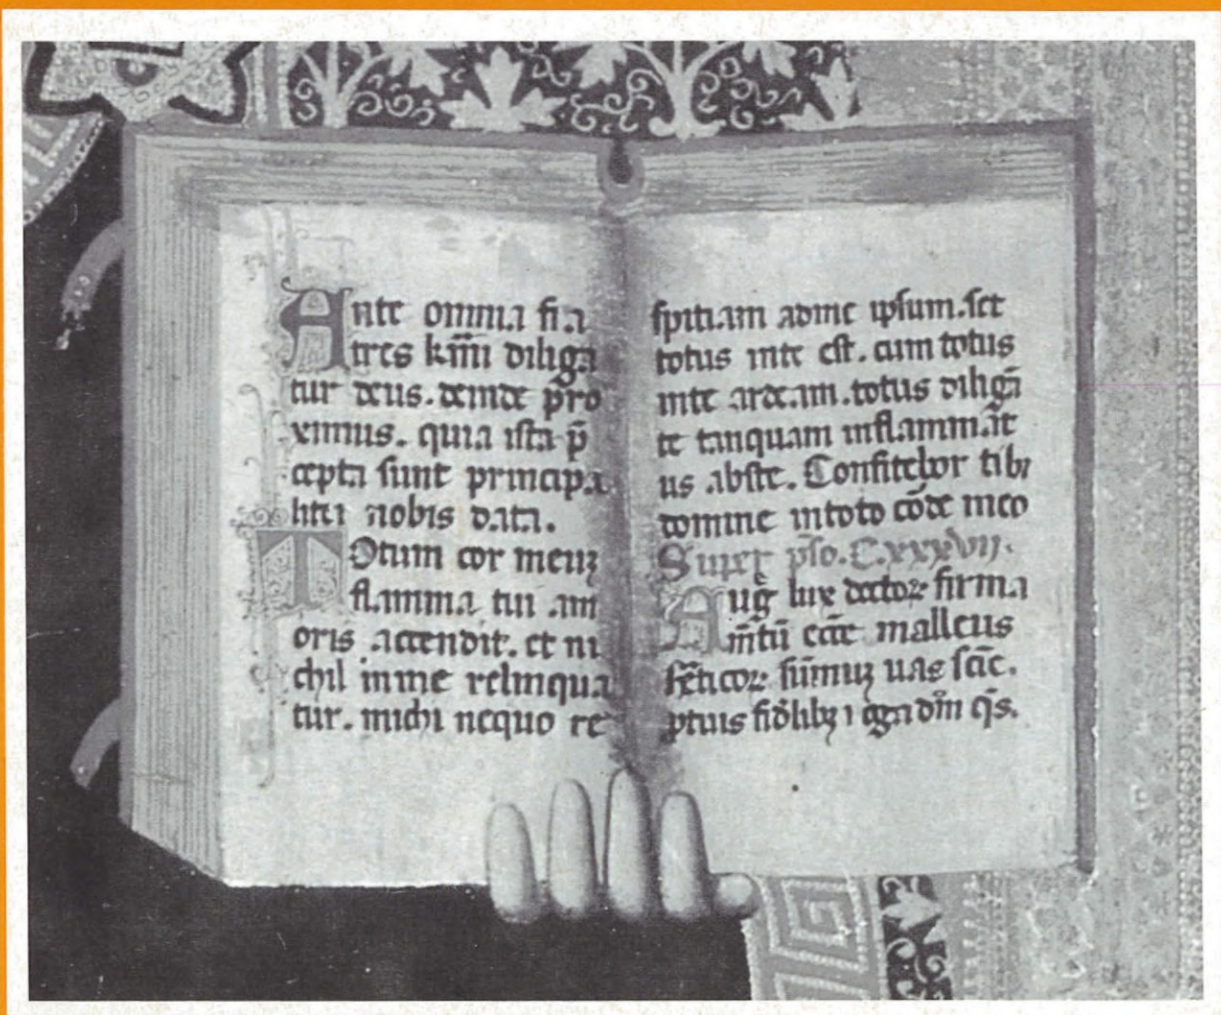 Ante omnia fra
tres kr̄mi diliga
tur deus. deinde pro
ximus. quia ista p̄
cepta sunt principa
liter nobis data.
Totum cor meuꝫ
flamma tui am
oris accendit. et ni
chil in me relinqua
tur. michi nequo re
spitiam adme ipsum. set
totus inte est. cum totus
inte ardeam. totus diligā
te tanquam inflammāt
us abste. Confitebor tibi
domine intoto cōde meo
Super pſo. C.xxxvii.
Aug lux doctoꝝ firma
malleus
uas